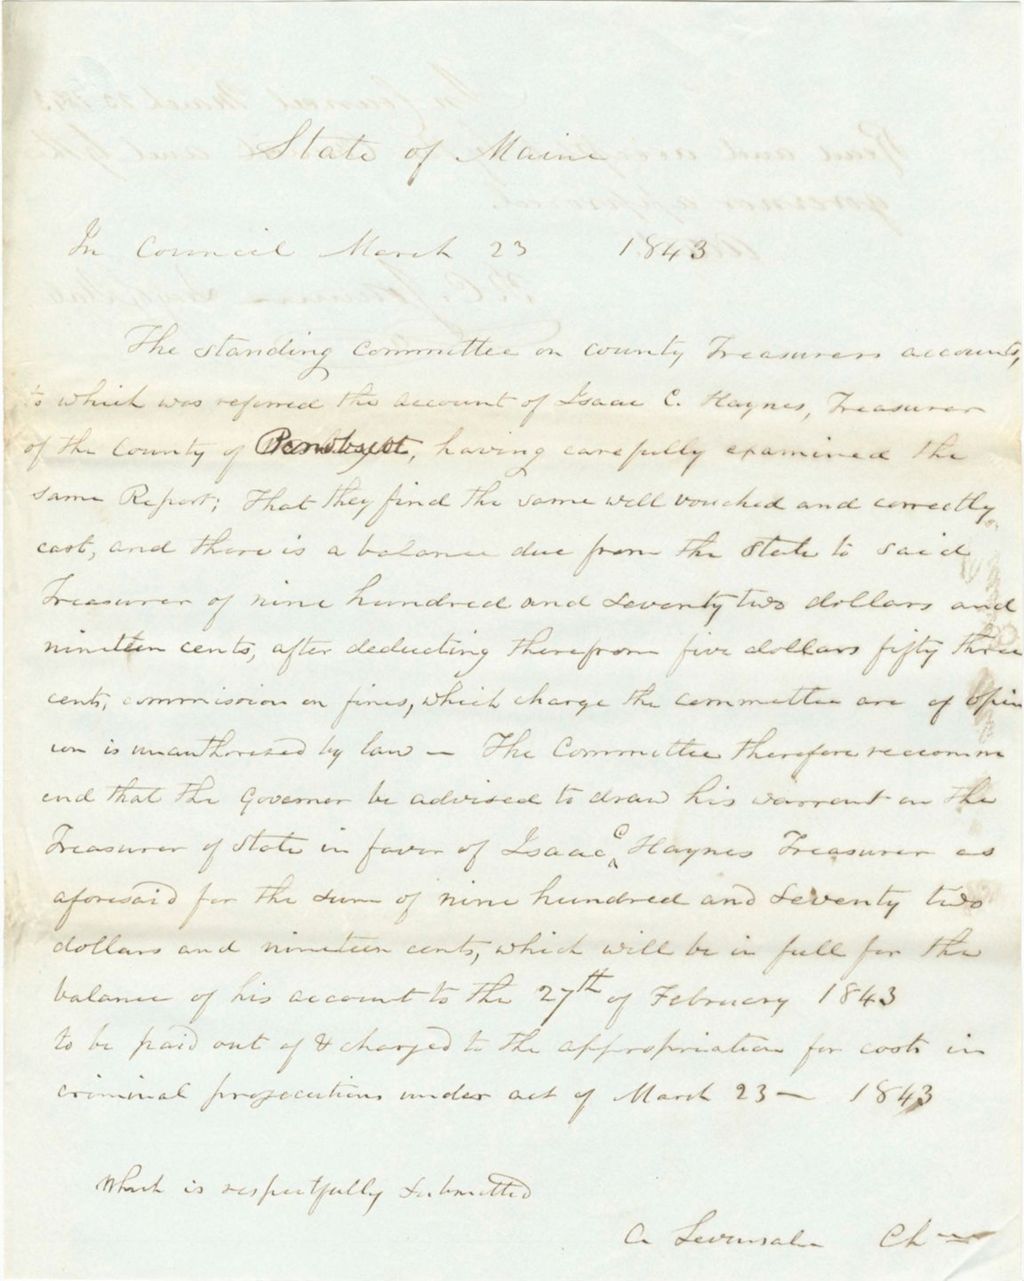 State of Maine
In Council March 23 1843
The standing committee on county Treasurers accounts,
to which was referred the account of Isaac C. Haynes, Treasurer
of the County of Penobscot, having carefully examined the
same Report; That they find the same well vouched and correctly
cast, and there is a balance due from the State to said
Treasurer of nine hundred and seventy two dollars and
nineteen cents, after deducting therefrom five dollars fifty three
cents, commission on fines, which charge the committee are of opin
ion is unauthorised by law — The Committee therefore recomm
end that the Governor be advised to draw his warrant on the
Treasurer of State in favor of Isaac C Haynes Treasurer as
aforesaid for the sum of nine hundred and seventy two
dollars and nineteen cents, which will be in full for the
balance of his account to the 27th of February 1843
to be paid out of & charged to the appropriation for costs in
criminal prosecutions under act of March 23 — 1843
Which is respectfully submitted
Chm